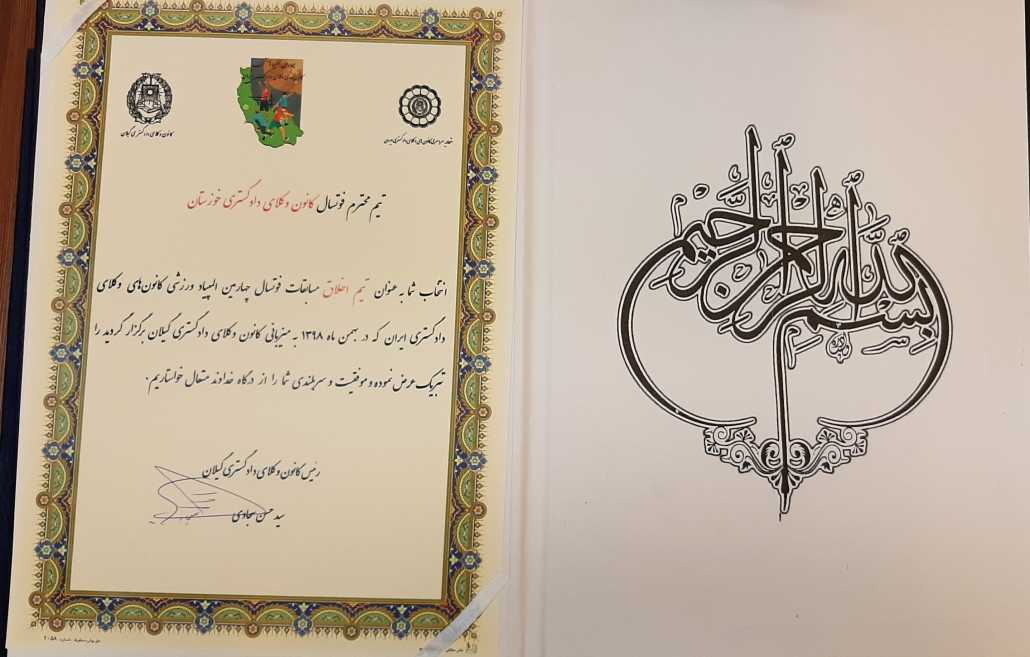 بسم الله الرحمن الرحیم
کانون وکلای دادگستری گیلان
تیم محترم فوتسال کانون وکلای دادگستری خوزستان
انتخاب شما به عنوان تیم اخلاق مسابقات فوتسال چهارمین المپیاد ورزشی کانون‌های وکلای
دادگستری ایران که در بهمن ماه ۱۳۹۸ به میزبانی کانون وکلای دادگستری گیلان برگزار گردید را
تبریک عرض نموده و موفقیت و سربلندی شما را از درگاه خداوند متعال خواستاریم.
رئیس کانون وکلای دادگستری گیلان
سید حسن سجادی